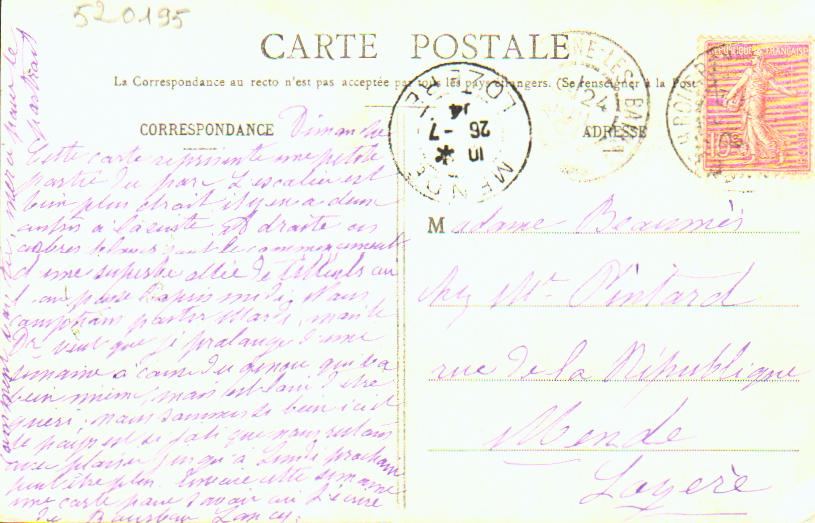 520195
CARTE POSTALE
La Correspondance au recto n'est pas acceptée par tous les pays étrangers. (Se renseigner à la Poste
CORRESPONDANCE
ADRESSE
Dimanche
Cette carte représente une petite
partie du parc L'escalier est
bien plus étroit il y en a deux
à la suite. A droite ces
arbres le commencement
d'une superbe allée de tilleuls au
l'on passe l'après midi. Nous
comptions partir Mardi, mais le
Dr veut que je prolonge d'une
semaine à cause du genou qui va
bien mieux, mais est loin d'être
guéri, nous sommes si bien ici et
le pays est si joli que nous restons
avec plaisir jusqu'à Lundi prochain
peut être plus. Envoie cette semaine
une carte pour savoir où t'écrire
de Bourbon Lancy.
merci pour le
portrait
Madame Beaumès
chez Mr Pintard
rue de la République
Mende
Lozère
MENDE
LOZERE
10 *
26 - 7
24
REPUBLIQUE FRANÇAISE
10c